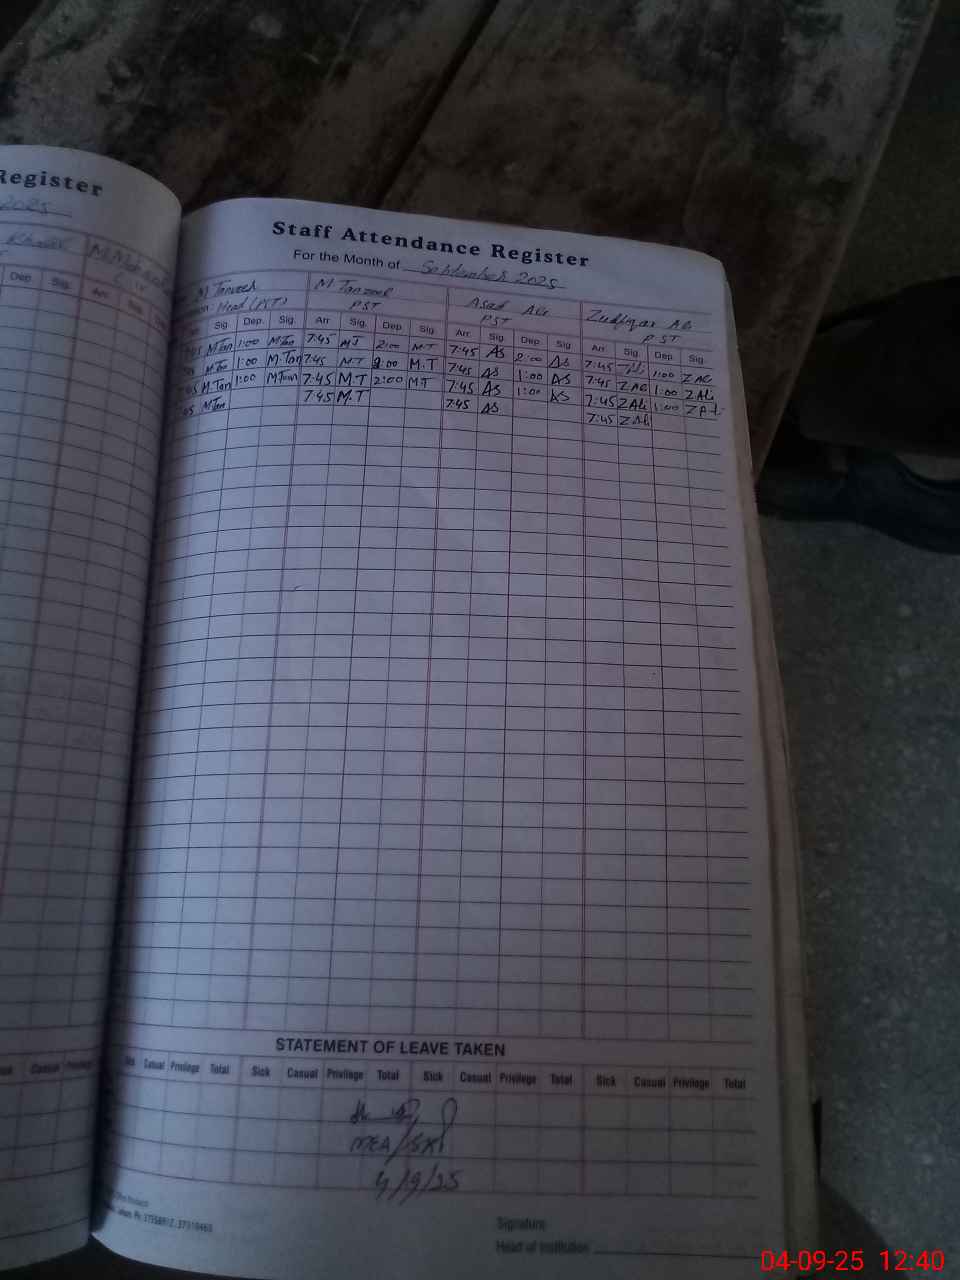 Register
2025
Dep. Sig. Arr.
Staff Attendance Register
For the Month of September 2025
M Tanveer M Tanzeel Asad Ali Zulfiqar Ali
Head (PST) PST PST PST
Sig. Dep. Sig. Arr. Sig. Dep. Sig. Arr. Sig. Dep. Sig. Arr. Sig. Dep. Sig.
M Tan 1:00 M Tan 7:45 MT 2:00 M.T 7:45 AS 2:00 AS 7:45 1:00 Z Ali
M Tan 1:00 M.Tan 7:45 M.T 2:00 M.T 7:45 AS 1:00 AS 7:45 Z Ali 1:00 Z Ali
M.Tan 1:00 M Tan 7:45 M.T 2:00 M.T 7:45 AS 1:00 AS 7:45 Z Ali 1:00 Z Ali
M Tan 7:45 M.T 7:45 AS 7:45 Z Ali
STATEMENT OF LEAVE TAKEN
Casual Privilege Total Sick Casual Privilege Total Sick Casual Privilege Total Sick Casual Privilege Total
MEA
4/9/25
Signature
Head of Institution
04-09-25 12:40